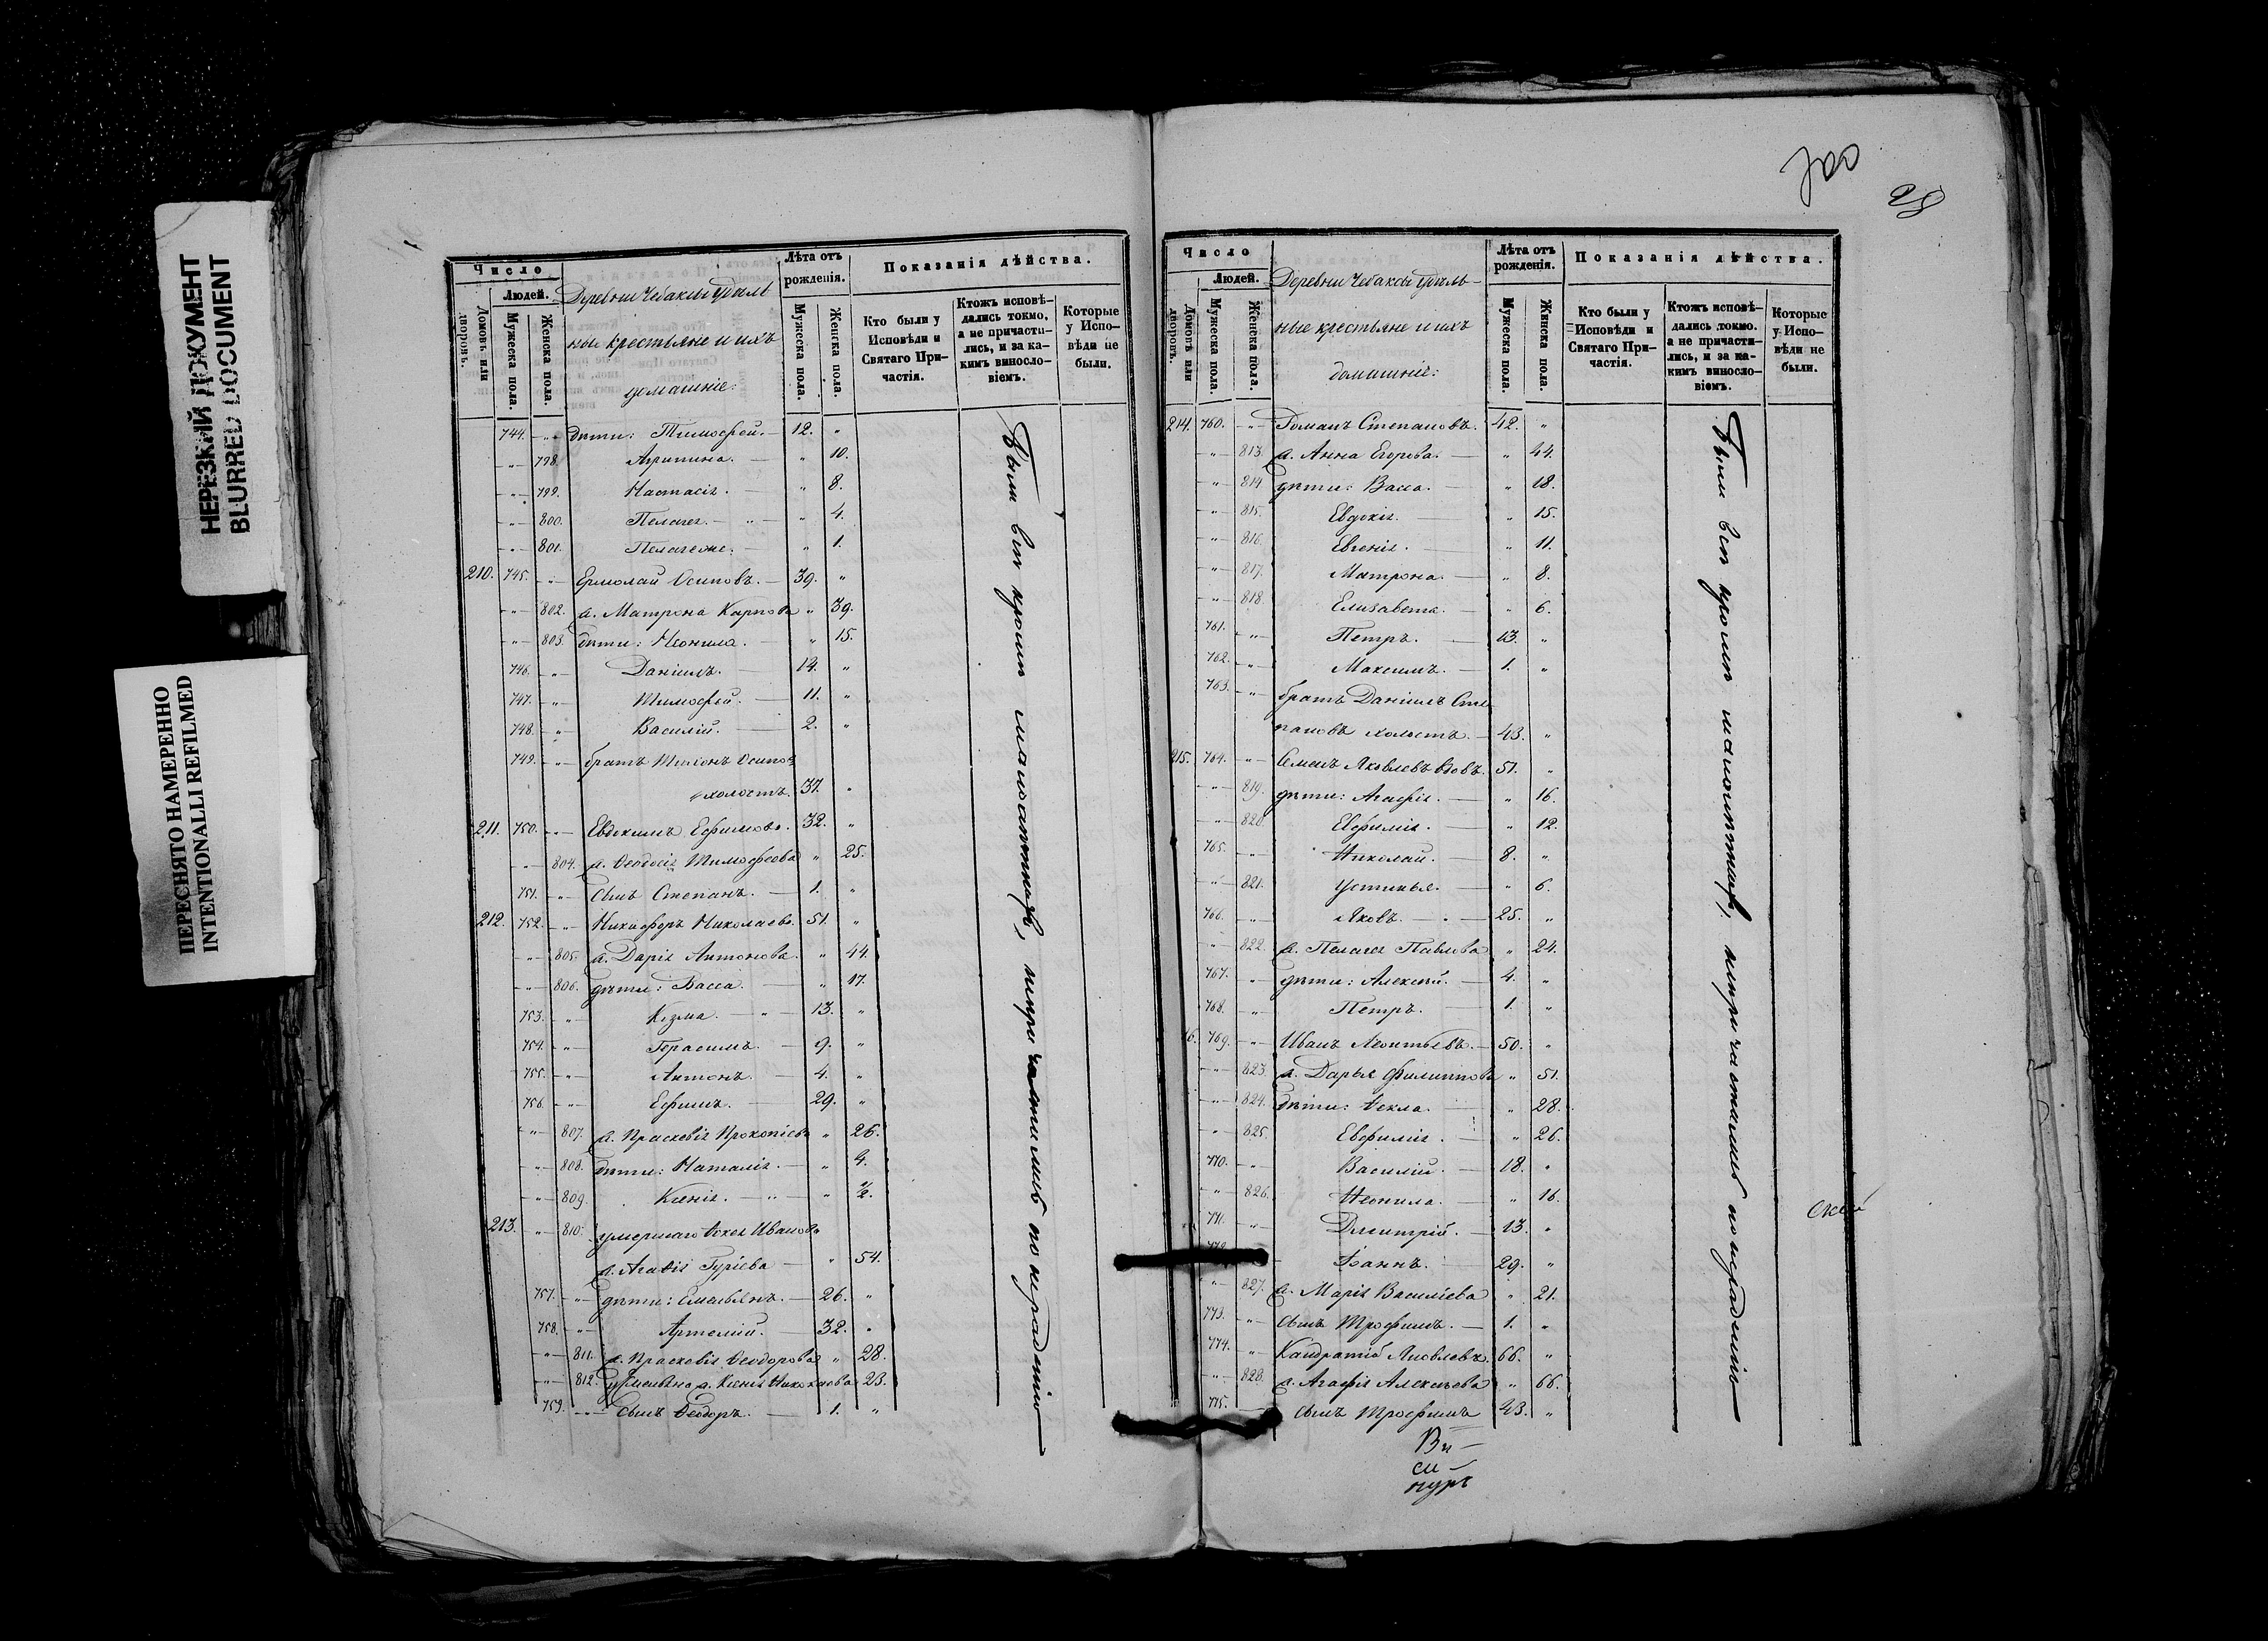 НЕРЕЗКИЙ ДОКУМЕНТ
BLURRED DOCUMENT
ПЕРЕСНЯТО НАМЕРЕННО
INTENTIONALLI REFILMED
Число
Людей.
Домовъ или дворовъ.
Мужеска пола.
Женска пола.
Деревни Чебаксы удѣль
ные крестьяне и ихъ
домашніе:
Лѣта отъ рожденія.
Мужеска пола.
Женска пола.
Показанія дѣйства.
Кто были у Исповѣди и Святаго Причастія.
Ктожъ исповѣдались токмо, а не причастились, и за какимъ винословіемъ.
Которые у Исповѣди не были.
744. -„- дѣти: Тимофей. — 12. „
-„- 798. Агрипина. — „ 10.
-„- 799. Настасія. — „ 8.
-„- 800. Пелагея. — „ — „ 4.
-„- 801. „ 1.
210. 745. -„- Ермолай Осиповъ. — 39. „
-„- 802. ж. Матрона Карпова „ 39.
-„- 803. дѣти: Неонила. — „ 15.
746. -„- Даніилъ. — 14. „
747. -„- Тимофей. — 11. „
748. -„- Василій. — 2. „
749. -„- братъ Осипов
холостъ. 37. „
211. 750. -„- Евдокимъ Ефимовъ. 32. „
-„- 804. ж. Ѳеодосія Тимофеева „ 25.
751. -„- сынъ Степанъ. — 1. „
212. 752. -„- Никифоръ Николаевъ. 51. „
-„- 805. ж. Дарія Антонова. „ 44.
-„- 806. дѣти: Васса. — „ 17.
753. -„- Козма. — „ — 13. „
754. -„- Герасимъ. — 9. „
755. -„- Антонъ. — 4. „
756. -„- Ефимъ. — 29. „
-„- 807. ж. Прасковія Прокопіева „ 26.
-„- 808. дѣти: Наталія. — „ 4.
-„- 809. Ксенія. — „ — „ ½.
213. -„- 810. умершаго Ивanова
ж. Гуріева — „ 54.
757. -„- дѣти: Емельянъ. — 26. „
758. -„- Артемій. — 32. „
-„- 811. ж. Прасковія Ѳеодорова „ 28.
-„- 812. у Емельяна ж. Ксенія Николаева 23.
759. -„- сынъ Ѳеодоръ. — 1. „
Были всѣ кромѣ малолѣтнихъ, непричастились по нерадѣнію
28
Число
Людей.
Домовъ или дворовъ.
Мужеска пола.
Женска пола.
Деревни Чебаксы удѣль-
ные крестьяне и ихъ
домашніе:
Лѣта отъ рожденія.
Мужеска пола.
Женска пола.
Показанія дѣйства.
Кто были у Исповѣди и Святаго Причастія.
Ктожъ исповѣдались токмо, а не причастились, и за какимъ винословіемъ.
Которые у Исповѣди не были.
214. 760. -„- Романъ Степановъ. 42. „
-„- 813. ж. Анна Егорова. — „ 44.
-„- 814 дѣти: Васса. — „ 18.
-„- 815. Евдокія. — „ 15.
-„- 816. Евгенія. — „ 11.
-„- 817. Матрона. — „ 8.
-„- 818. Елизавета. — „ 6.
761. -„- Петръ. — 13. „
762. -„- Максимъ. — 1. „
763. -„- братъ Даніилъ Сте
пановъ холостъ. — 43. „
215. 764. -„- Семенъ Яковлевъ вдовъ. 51. „
-„- 819. дѣти: Агафія. — „ 16.
-„- 820. Евфимія. — „ 12.
765. -„- Николай. — 8. „
-„- 821. Устинья. — „ 6.
766. -„- Яковъ. — 25. „
-„- 822. ж. Пелагея Павлова „ 24.
767. -„- дѣти: Алексѣй. — 4. „
768. -„- Петръ. — 1. „
16. 769. -„- Иванъ Леонтьевъ. — 50. „
-„- 823. ж. Дарья Филиппова „ 51.
-„- 824. дѣти: Ѳекла. — „ 28.
-„- 825. Евфимія. — „ 26.
770. -„- Василій. — 18. „
-„- 826. Неонила. — „ 16.
771. -„- Дмитрій. — 13. „
772. Іоаннъ. — 29. „
-„- 827. ж. Марія Василіева „ 21.
773. -„- сынъ Трофимъ. — 1. „
774. -„- Кандратій Яковлевъ. 66. „
-„- 828. ж. Агафія Алексѣева „ 66.
775. сынъ Трофимъ 43. „
Были всѣ кромѣ малолѣтнихъ, непричастились по нерадѣнію